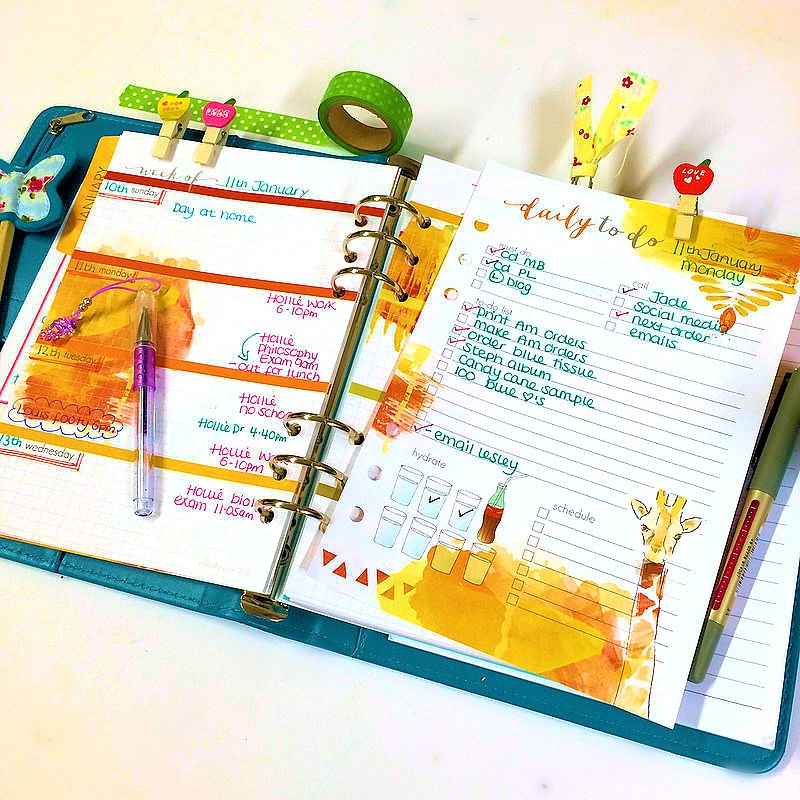 FOR YOU
JANUARY
week of 11th January
10th sunday
Day at home
11th monday
Hollie Work
6-10pm
Hollie
Philosophy
Exam 9am
-out for lunch
12th tuesday
Hollie
no school
Hollie Dr 4.40pm
Louis footy 6pm
Hollie
6-10pm
13th wednesday
Hollie
exam 11.05am
LOVE
daily to do
11th January
monday
must do
cd MB
cd PL
blog
call
Jade
social media
next order
emails
to do list
Print Am orders
make Am orders
order blue tissue
Steph album
candy cane sample
100 blue ♡'s
email lesley
hydrate
schedule